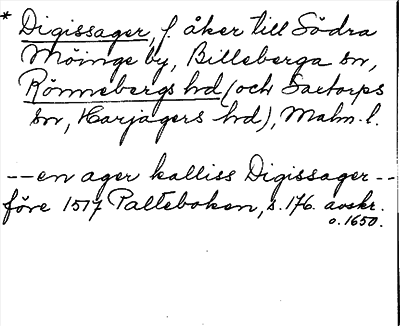 * Digissager, f. åker till Södra
Möinge by, Billeberga sn,
Rönnebergs hd (och Saxtorps
sn, Harjagers hd), Malm. l.
-- en ager kalliss Digissager --
före 1517 Palteboken, s. 176. avskr.
o. 1650.